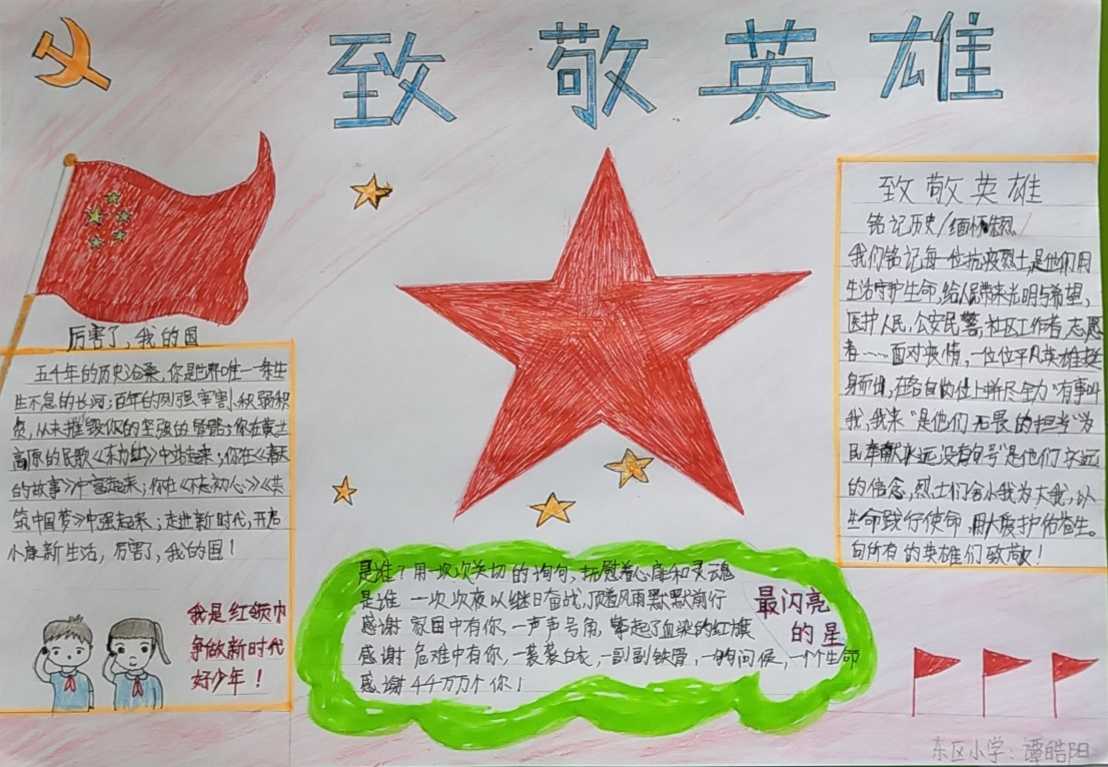 致敬英雄
厉害了,我的国
五千年的历史沧桑,你是世界唯一奔生
生不息的长河;百年的列强宰割、积弱积
贫,从未摧毁你的坚强的臂膀;你在黄土
高原的民歌《东方红》中站起来;你在《春天
的故事》中富起来;你在《不忘初心》《共
筑中国梦》中强起来;走进新时代,开启
小康新生活,厉害了,我的国!
我是红领巾
争做新时代
好少年!
是谁?用一次次关切的询句,抚慰着心扉和灵魂
是谁 一次次夜以继日奋战,顶着风雨默默前行
感谢 家国中有你,一声声号角,擎起了血染的红旗
感谢 危难中有你,一袭袭白衣,一副副铁骨,一句句问候,一个个生命
感谢44万万个你!
最闪亮
的星
致敬英雄
铭记历史/缅怀先烈/
我们铭记每一位抗疫烈士是他们用
生活守护生命,给人民带来光明与希望,
医护人民,公安民警,社区工作者,志愿
者……面对疫情,一位位平凡英雄挺
身而出,在各自岗位上拼尽全力"有事叫
我,我来"是他们无畏的担当"为
民奉献永远没有句号"是他们永远
的信念,烈士们舍小我为大我,以
生命践行使命,用大爱护佑苍生。
向所有的英雄们致敬!
东区小学:谭皓阳